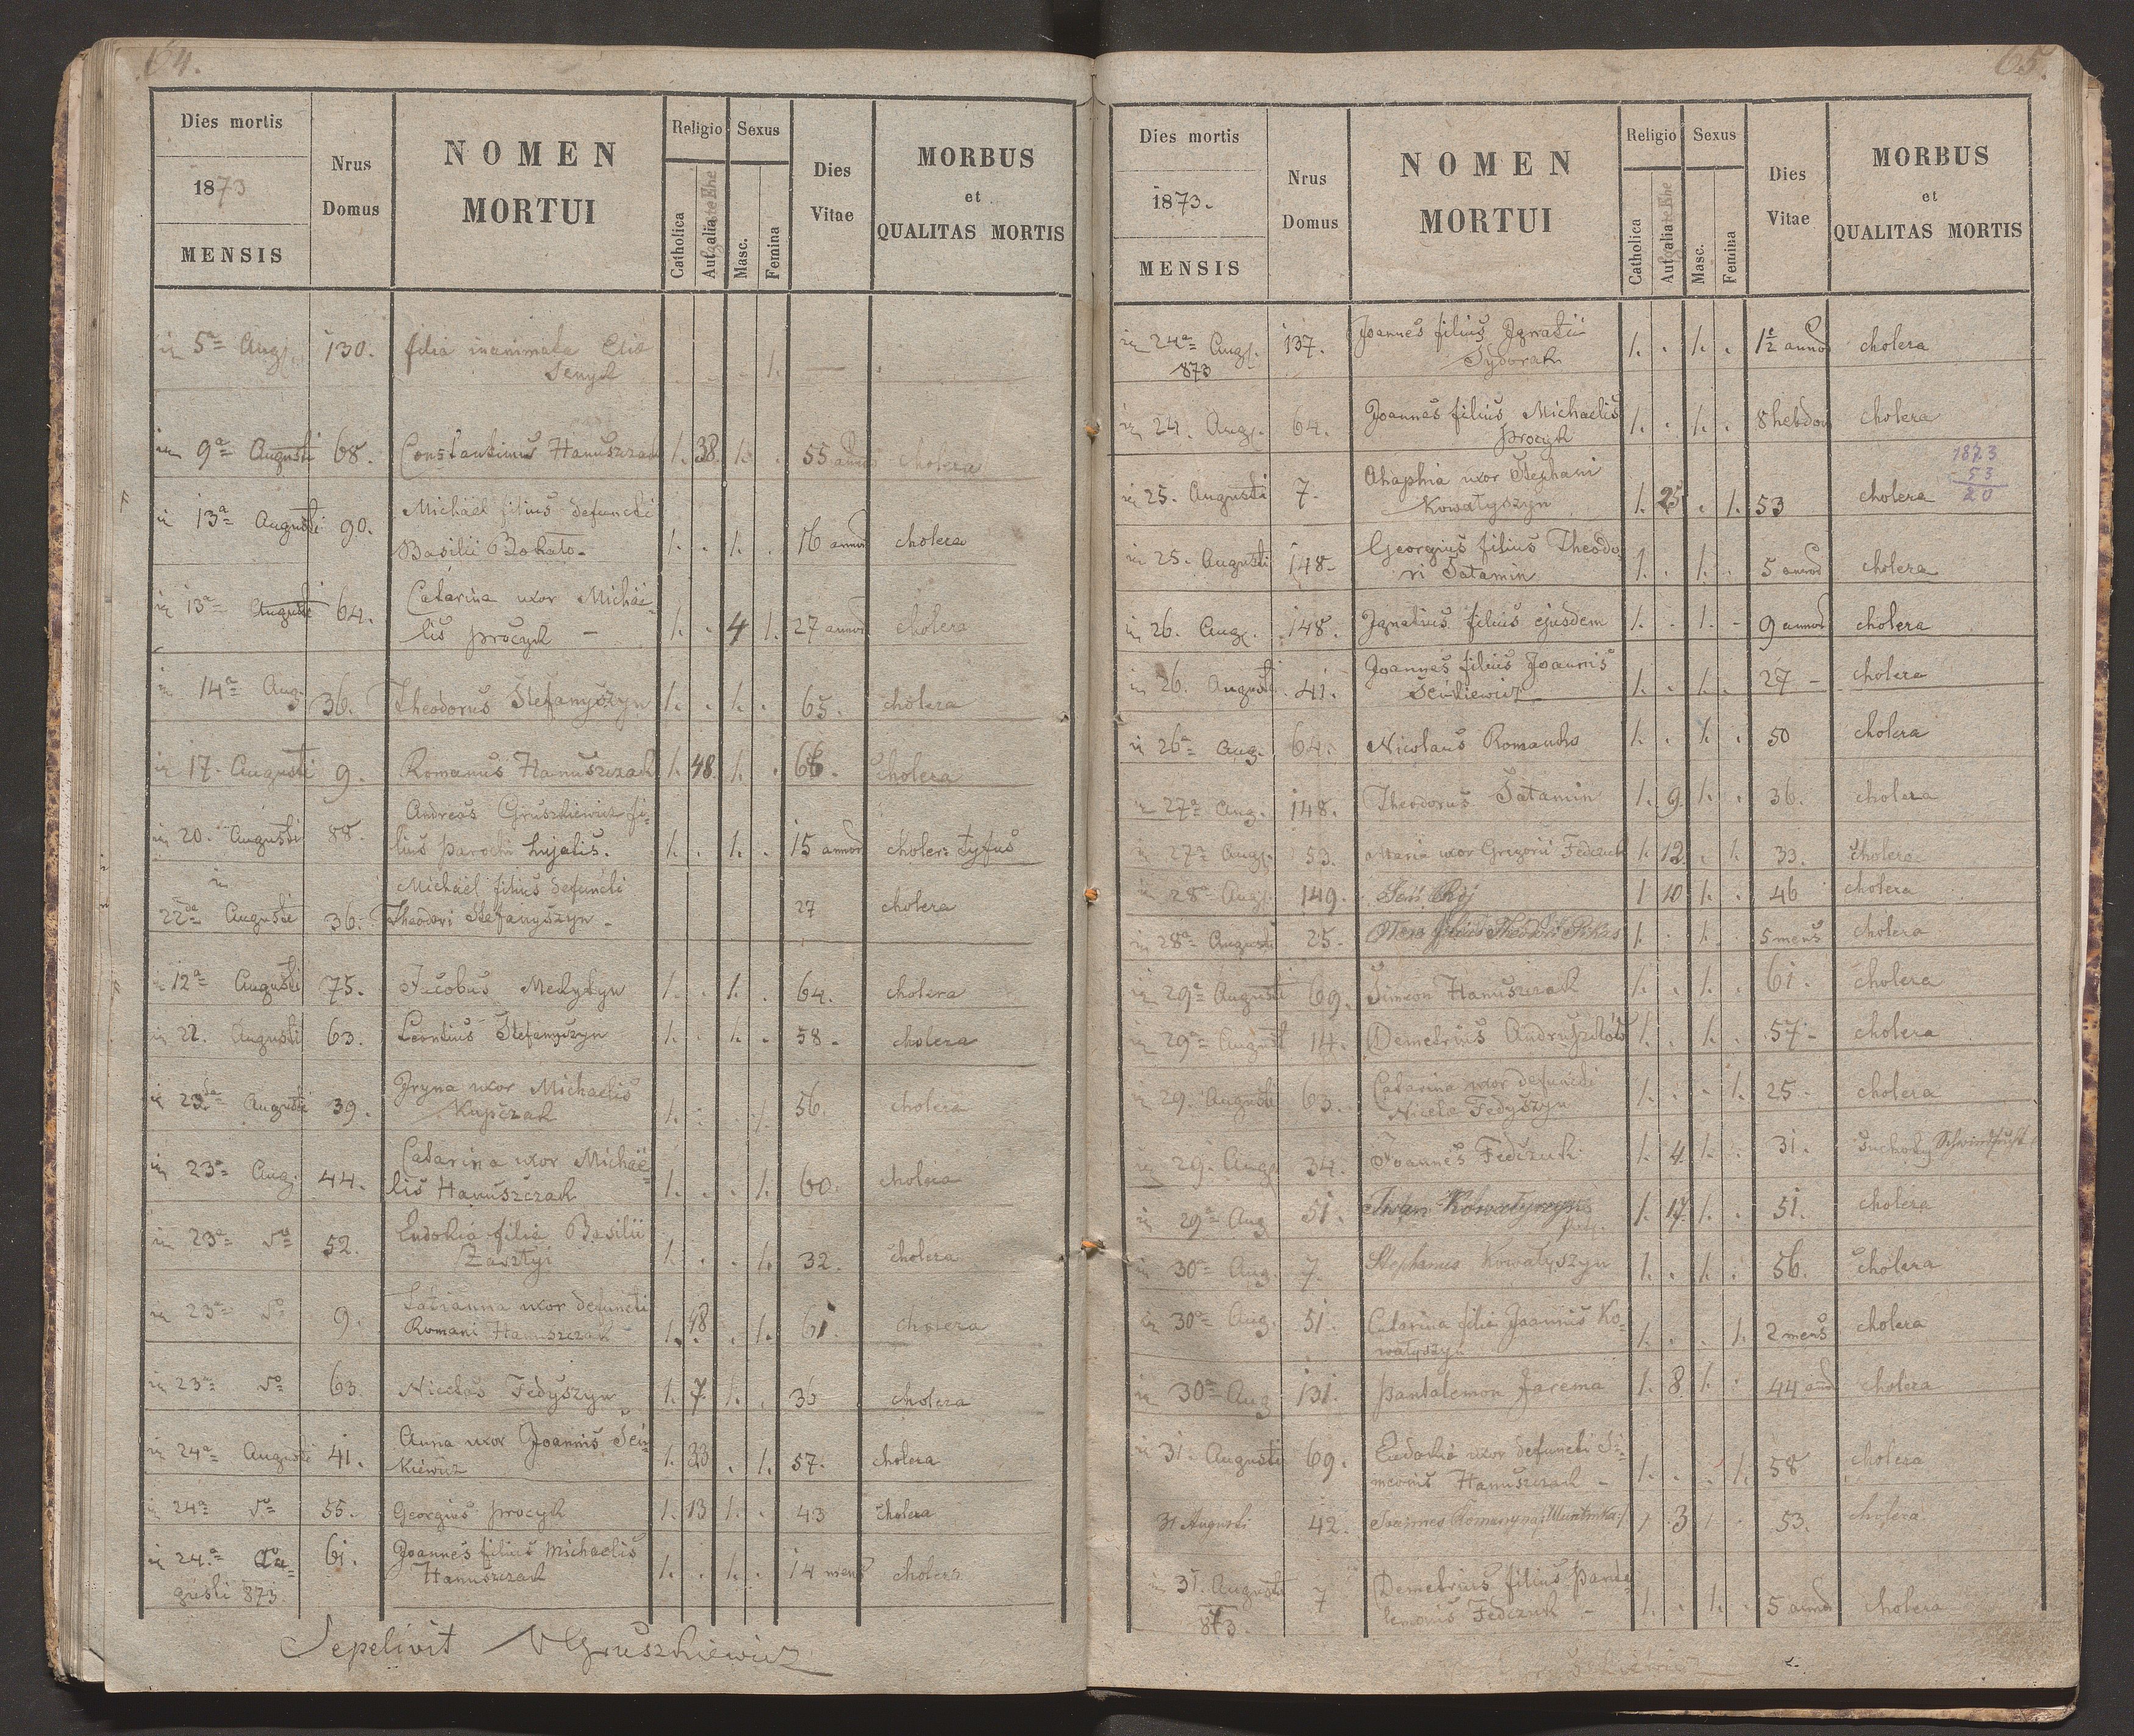 64.
Dies mortis
1873
MENSIS
Nrus
Domus
NOMEN
MORTUI
Religio
Sexus
Catholica
Masc.
Femina
Dies
Vitae
MORBUS
et
QUALITAS MORTIS
in 5a Aug. 130. filia inanimata Eliæ
Senyk 1. —
in 9a Augusti 68. Constantinus Hanuszczak 1. 38. 1. . 55 annos cholera
in 13a Augusti 90. Michaël filius defuncti
Basilii Bokalo- 1. . 1. . 16 annos cholera
in 13a Augusti 64. Catarina uxor Michaë-
lis Procyk - 1. . 4 1. 27 annos cholera
in 14a Aug. 36. Theodorus Stefanyszyn 1. . 1. . 65. cholera
in 17. Augusti 9. Romanus Hanuszczak 1. 48. 1. . 66. cholera
in 20. Augusti 88. Andreas Gruszkiewicz fi-
lius parochi hujatis. 1. . 1. . 15 annos choler: tyfus
in
22da Augusti 36. Michaël filius defuncti
Theodori Stefanyszyn - 27 cholera
in 12a Augusti 75. Jacobus Medydyn 1. . 1. . 64. cholera
in 22. Augusti 63. Leontius Stefanyszyn 1. . 1. . 58. cholera
in 23da Augusti 39. Iryna uxor Michaelis
Kupczak 1. . . 1. 56. cholera
in 23a Aug. 44. Catarina uxor Michaë-
lis Hanuszczak 1. . . 1. 60. cholera
in 23a do 52. Eudokia filia Basilii
1. . . 1. 32. cholera
in 23a do 9. Tatianna uxor defuncti
Romani Hanuszczak 1. 48 . 1. 61. cholera
in 23a do 63. Nicetas Fedyszyn 1. 7. 1. . 36 cholera
in 24a Augusti 41. Anna uxor Joannis Sen-
kiewicz 1. 33 . 1. 57. cholera
in 24a do 55. Georgius Procyk 1. 13 1. . 43 cholera
in 24.a Au-
gusti 873 61. Joannes filius Michaelis
Hanuszczak 1. . 1. . 14 mens cholera
Sepelivit Gruszkiewicz
65.
Dies mortis
1873.
MENSIS
Nrus
Domus
NOMEN
MORTUI
Religio
Sexus
Catholica
Masc.
Femina
Dies
Vitae
MORBUS
et
QUALITAS MORTIS
in 24a Aug. 873 137. Joannes filius Ignatii
Sydorak 1. . 1. . 1½ annos cholera
in 24. Aug. 64. Joannes filius Michaelis
Procyk 1. . 1. . 8 hebdom cholera
1873
53
20
in 25. Augusti 7. Ahaphia uxor Stephani
Kowałyszyn 1. 25 . 1. 53 cholera
in 25. Augusti 148. Georgius filius Theodo
ri Satamin 1. . 1. . 5 annos cholera
in 26. Aug. 148. Ignatius filius ejusdem 1. . 1. - 9 annos cholera
in 26. Augusti 41. Joannes filius Joannis
Senkiewicz 1. . 1. . 27 - cholera
in 26a Aug. 64. Nicolaus Romanko 1. . 1. . 50 cholera
in 27a Aug. 148. Theodorus Satamin 1. 9. 1. . 36. cholera
in 27a Aug. 53. Maria uxor Gregorii Fedczuk 1. 12. . 1. 33. cholera
in 28a Aug. 149. 1 10 1. . 46 cholera
in 28a Augusti 25. filius Theodori 1. . 1. . 5 mens cholera
in 29a Augusti 69. Simeon Hanuszczak 1. . 1. . 61. cholera
in 29a August 14. Demetrius 1. . 1. . 57 - cholera
in 29. Augusti 63. Catarina uxor defuncti
Nicetæ Fedyszyn 1. . . 1. 25. cholera
in 29. Aug 34. Joannes Fedczuk 1. 4. 1. . 31. Suchoty Schwindsucht
in 29a Aug 51. Iwan Kowałyszyn 1. 17. 1. . 51. cholera
in 30a Aug. 7. Stephanus Kowałyszyn 1. . 1. . 56. cholera
in 30a Aug. 51. Catarina filia Joannis Ko-
wałyszyn 1. . . 1. 2 mens cholera
in 30a Aug 131. Pantalemon Jarema 1. 8 1. . 44 ann cholera
in 31. Augusti 69. Eudokia uxor defuncti Si-
meonis Hanuszczak - 1. . . 1. 58 cholera
31 Augusti 42. Joannes 1 3 1 . 53. cholera
in 31. Augusti
873. 7 Demetrius filius Panta-
lemonis Fedczuk - 1. . 1. . 5 annos cholera